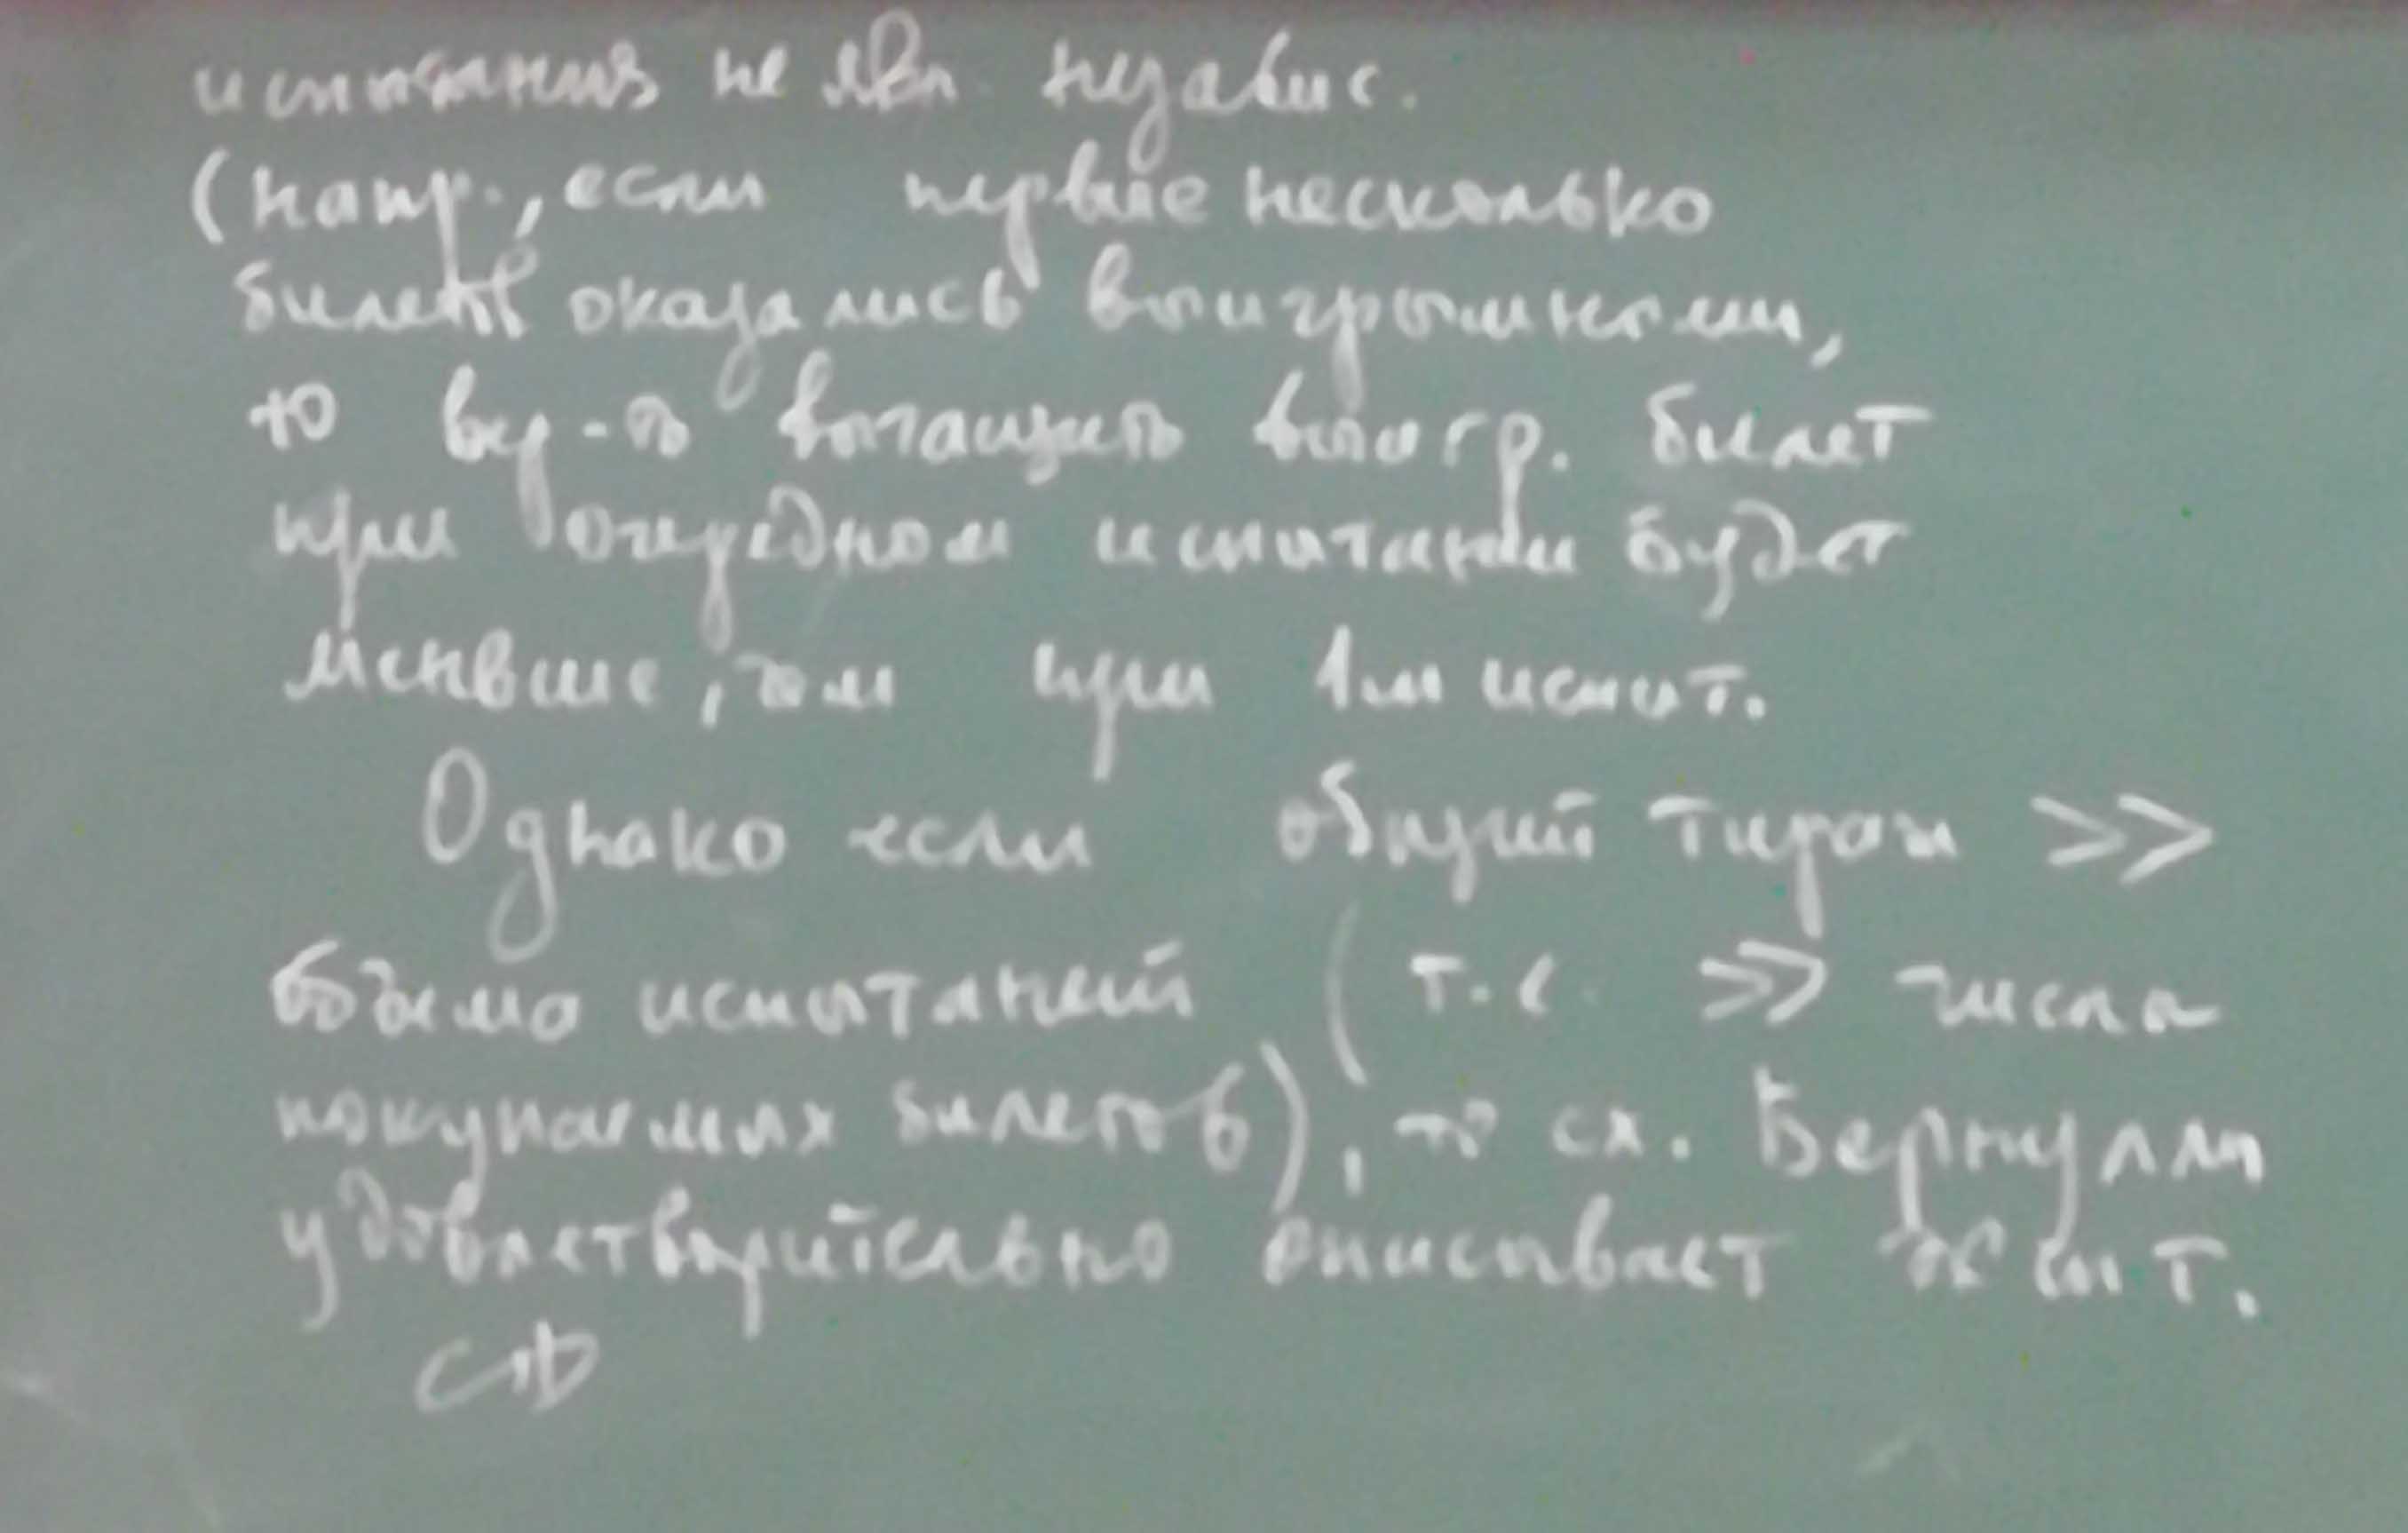 испытания не явл. независ.
(напр., если первые несколько
билетов оказались выигрышными,
то вер-ть вытащить выигр. билет
при очередном испытании будет
меньше, чем при 1м испыт.
Однако если общий тираж >>
объёма испытаний (т.е. >> числа
покупаемых билетов), то сх. Бернулли
удовлетворительно описывает